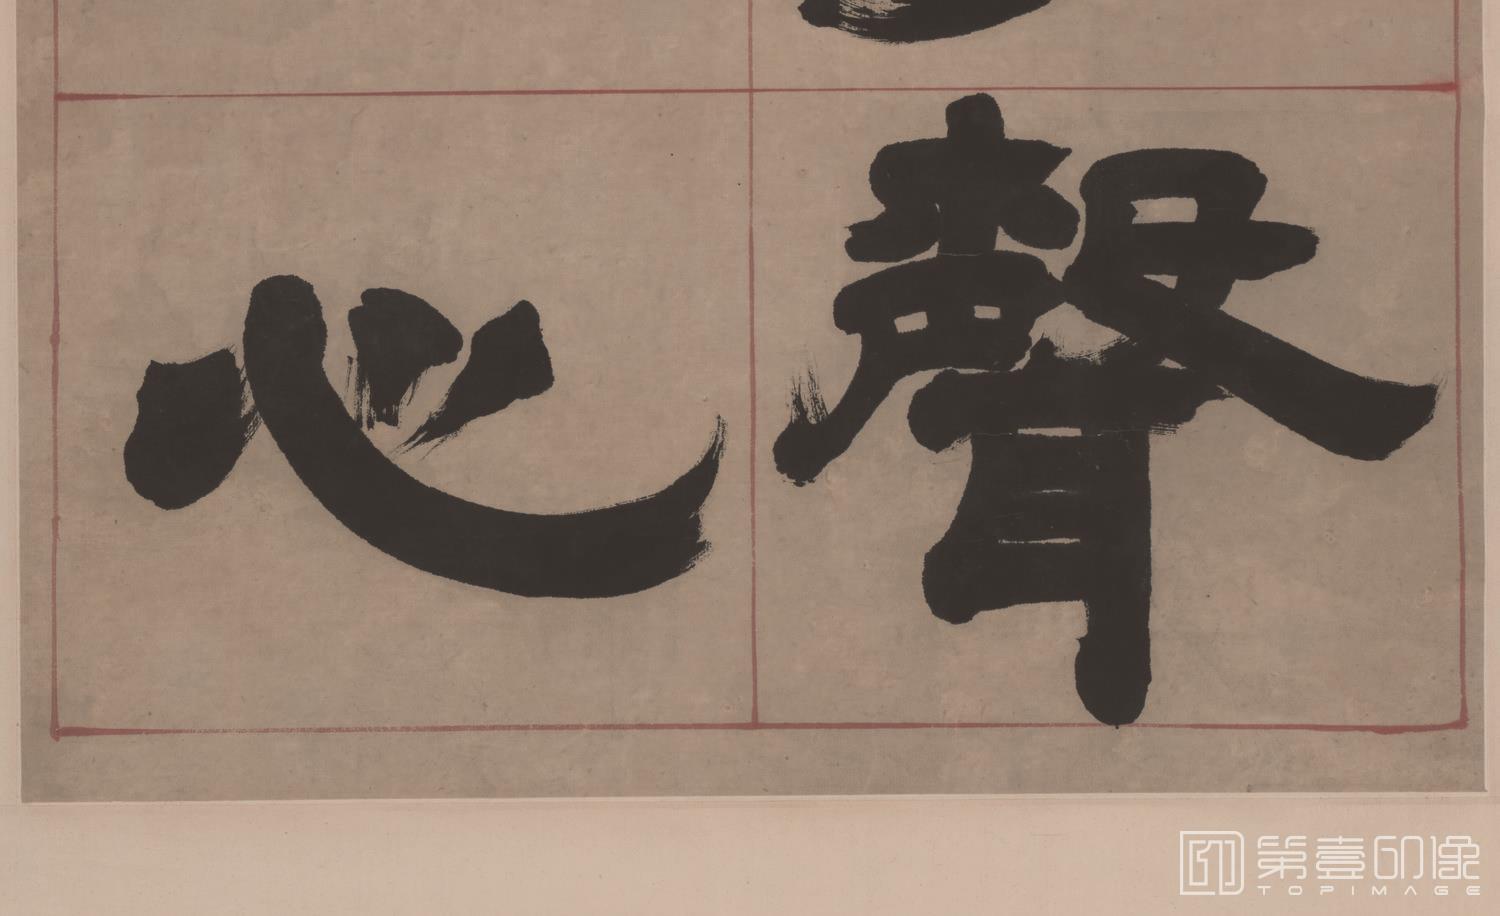 聲
心
第壹印像
TOPIMAGE